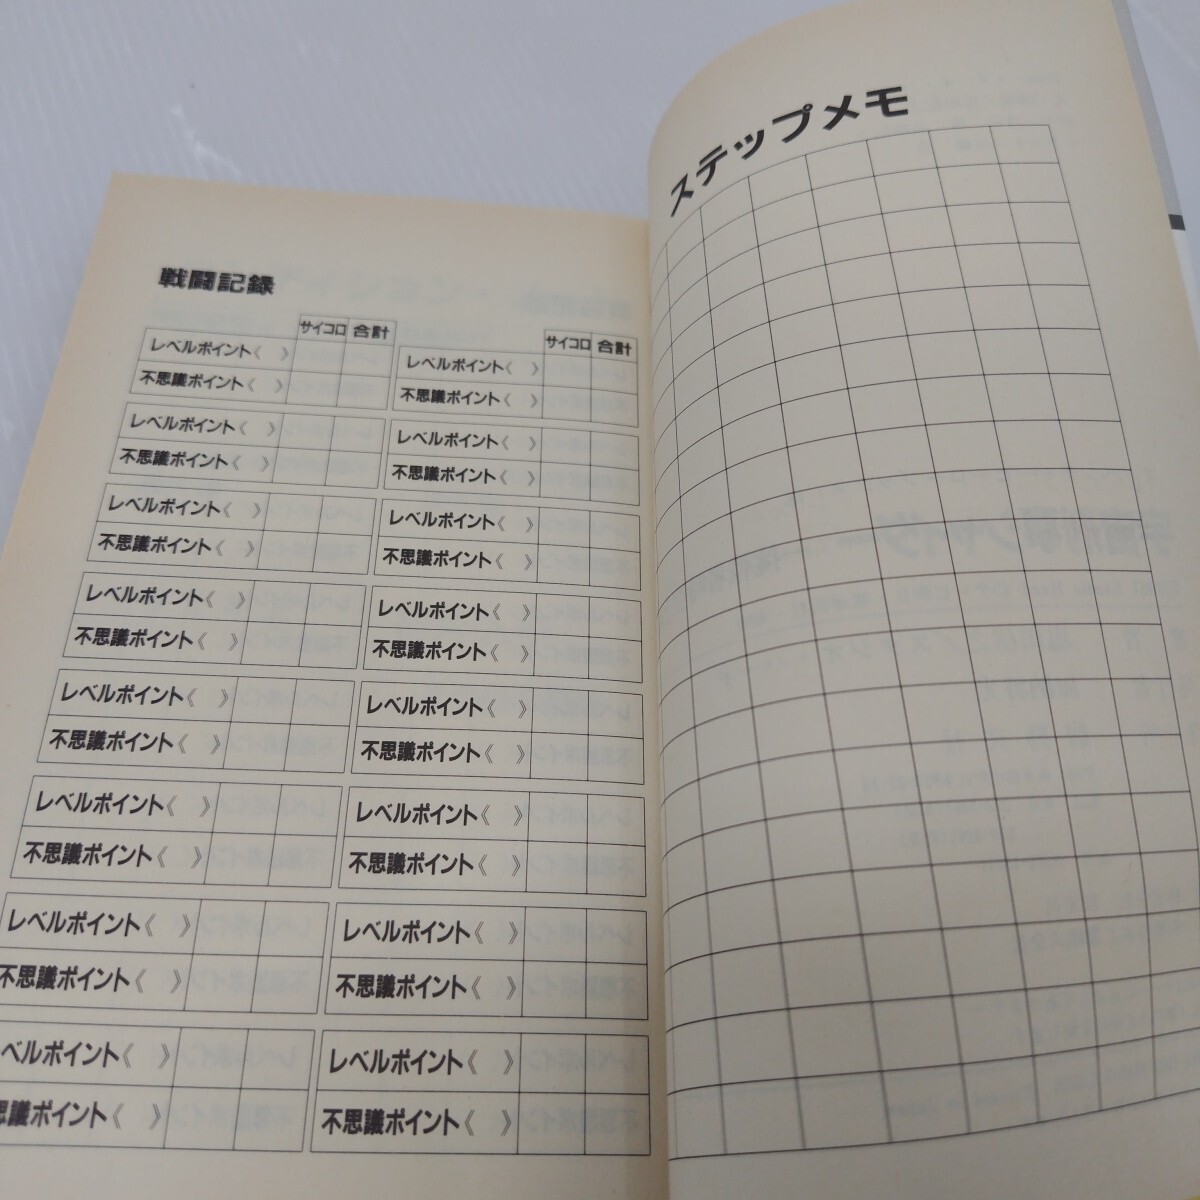 戦闘記録
サイコロ 合計
レベルポイント《　》
不思議ポイント《　》
レベルポイント《　》
不思議ポイント《　》
レベルポイント《　》
不思議ポイント《　》
レベルポイント《　》
不思議ポイント《　》
レベルポイント《　》
不思議ポイント《　》
レベルポイント《　》
不思議ポイント《　》
レベルポイント《　》
不思議ポイント《　》
ベルポイント《　》
思議ポイント《　》
サイコロ 合計
レベルポイント《　》
不思議ポイント《　》
レベルポイント《　》
不思議ポイント《　》
レベルポイント《　》
不思議ポイント《　》
レベルポイント《　》
不思議ポイント《　》
レベルポイント《　》
不思議ポイント《　》
レベルポイント《　》
不思議ポイント《　》
レベルポイント《　》
不思議ポイント《　》
レベルポイント《　》
不思議ポイント《　》
ステップメモ